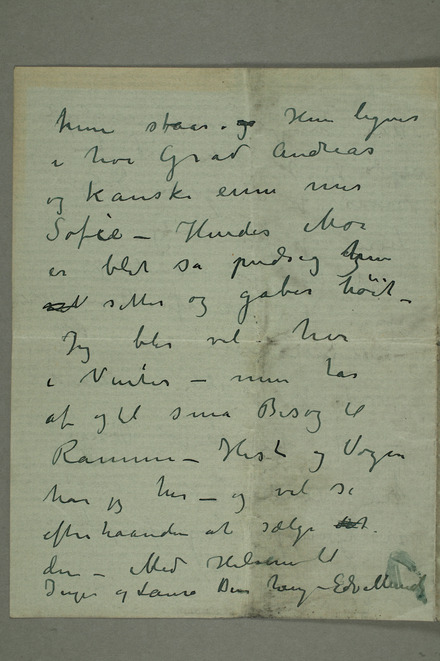 hun staar. og Hun ligner
i høi Grad Andreas
og kanske ennu mer
Sofie – Hendes Mor
er blet sa pudsig hun
sitter og gaber høit –
Jeg blir vel her
i Vinter – men tar
af og til sma Besøg til
Ramme – Hest og Vogn
har jeg her – og vil se
efterhaanden at sælge
den – Med Hilsen til
Inger og Laura Din heng – Edv Munch